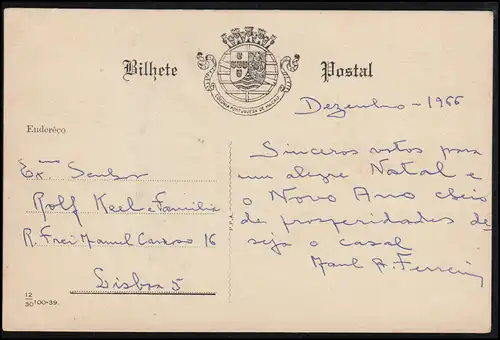 Bilhete Postal
COLONIA PORTUGUESA DE MACAU
Dezembro - 1966
Endereço
Exmo Senhor
Rolf Keel e Familia
R. Frei Manuel Cardoso 16
Lisboa 5
12
30 100-39.
Sinceros votos para
um alegre Natal e
o Novo Ano cheio
de prosperidades de-
seja o casal
A. Ferreira